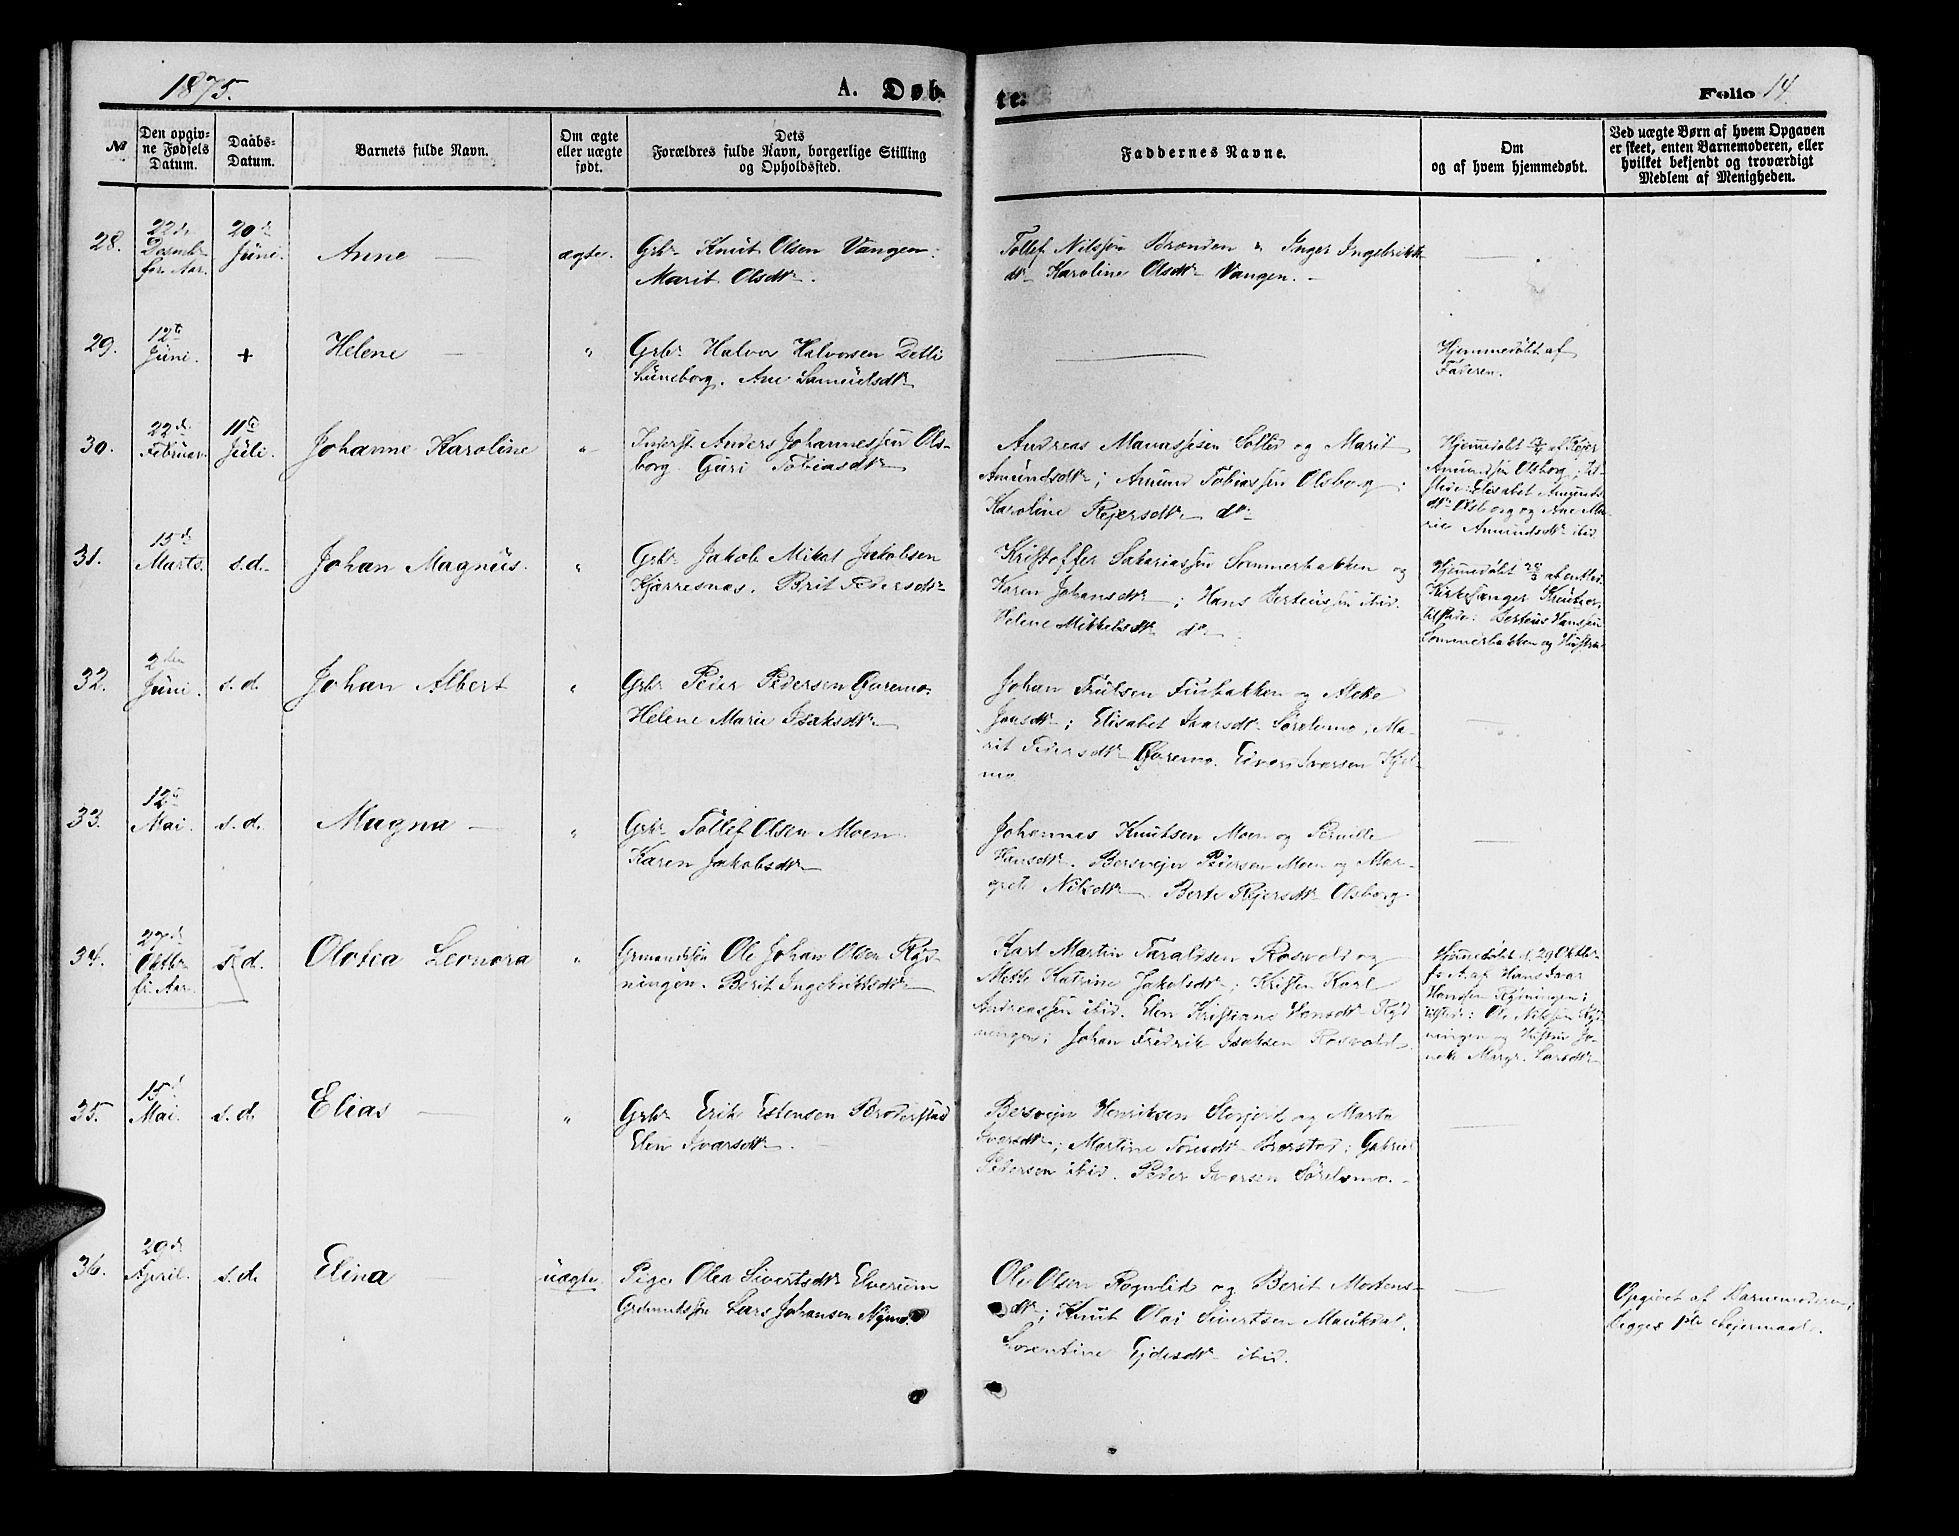 1875.
A. Døbte.
Folio 14.
№
Den opgivne Fødsels Datum.
Daabs-Datum.
Barnets fulde Navn.
Om ægte eller uægte født.
Dets Forældres fulde Navn, borgerlige Stilling og Opholdssted.
Faddernes Navne.
Om og af hvem hjemmedøbt.
Ved uægte Børn af hvem Opgaven er skeet, enten Barnemoderen, eller hvilket bekjendt og troværdigt Medlem af Menigheden.
28.
22de
Desembr
for. Aar.
20de
Juni.
Anne —
ægte.
Grbr Knut Olsen Vangen.
Marit Olsdtr.
Tollef Nilssen Branden & Inger Ingebrikts
dtr Karoline Olsdtr Vangen. —
29.
12te
Juni.
+
Helene —
"
Grbr Halvor Halvorsen Detli
Luneborg. Ane Samuelsdtr
Hjemmedøbt af
Faderen.
30.
22de
Februar
11te
Juli.
Johanne Karoline
"
Inderst Anders Johannessen Ols-
borg. Guri Tobiasdtr
Andreas Manassesen Solli og Marit
Amundsdtr; Amund Tobiassen Olsborg;
Karoline Rejersdtr do
Hjemmedøbt af Rejer
Amundsen Olsborg; til-
stede: Elisabet Amunds
dtr Olsborg og Ane Ma-
rie Amundsdtr ibid
31.
15de
Marts.
s.d.
Johan Magnus.
"
Grbr Jakob Mikal Jakobsen
Kjærresnæs. Brit Pedersdtr
Kristoffer Sakariassen Sommerbakken og
Karen Johansdtr; Hans Berteussen ibid.
Helene Mikkelsdtr do
Hjemedøbt 28/3 af entled.
Kirkesanger Knutsen,
tilstede: Berteus Hansen
Sommerbakken og Hustru
32.
2den
Juni.
s.d.
Johan Albert
"
Grbr Peder Pedersen Guremo
Helene Marie Isaksdtr
Johan
og
Jonsdtr; Elisabet Ivarsdtr Sørelsmo, Ma-
rit Pedersdtr Guremo. Einar Iversen Kjel-
mo
33.
12te
Mai.
s.d.
Magna —
"
Grbr Tollef Olsen Moen
Karen Jakobsdtr
Johannes Knutsen Moen og Pernille
Hansdtr. Bersvejn Pedersen Moen og Mar-
grete Nilsdtr. Berte Rejersdtr Olsborg
34.
27de
Oktbr
fr. Aar.
s.d.
Olotea Leonora
"
Grmandssøn Ole Johan Olsen Ryd-
ningen. Berit Ingebriktsdtr
Karl Martin Taraldsen Rosvold og
Mette Katrine Jakobsdtr; Kristen Karl
Andreassen ibid. Elen Kristiane Hansdtr Ryd
ningen; Johan Fredrik Isaksen Rosvold
Hjemedøbt d. 29 Oktbr
f. A. af Hans Ivar
Hansen Rydningen;
tilstede: Ole Nilssen Ryd-
ningen og Hustru Ja-
Margr. Larsdtr
35.
15de
Mai.
s.d.
Elias —
"
Grbr Erik Estensen Broderstad
Elen Ivarsdtr.
Bersvejn Henriksen Storjord og Marta
Iversdtr; Martine Tønsdtr Brorstad; Gabriel
Pedersen ibid. Peder Iversen Sørelsmo. —
36.
29de
April.
s.d.
Elina
uægte.
Pige Olea Sivertsdtr Elverum
Grdmandssøn Lars Johansen Nymo.
Ole Olsen Rognlid og Berit Mortens-
dtr; Knut Olai Sivertsen Maukdal.
Lorentine Ejdesdtr ibid.
Opgivet af Barnemoderen;
begges 1ste Lejermaal.